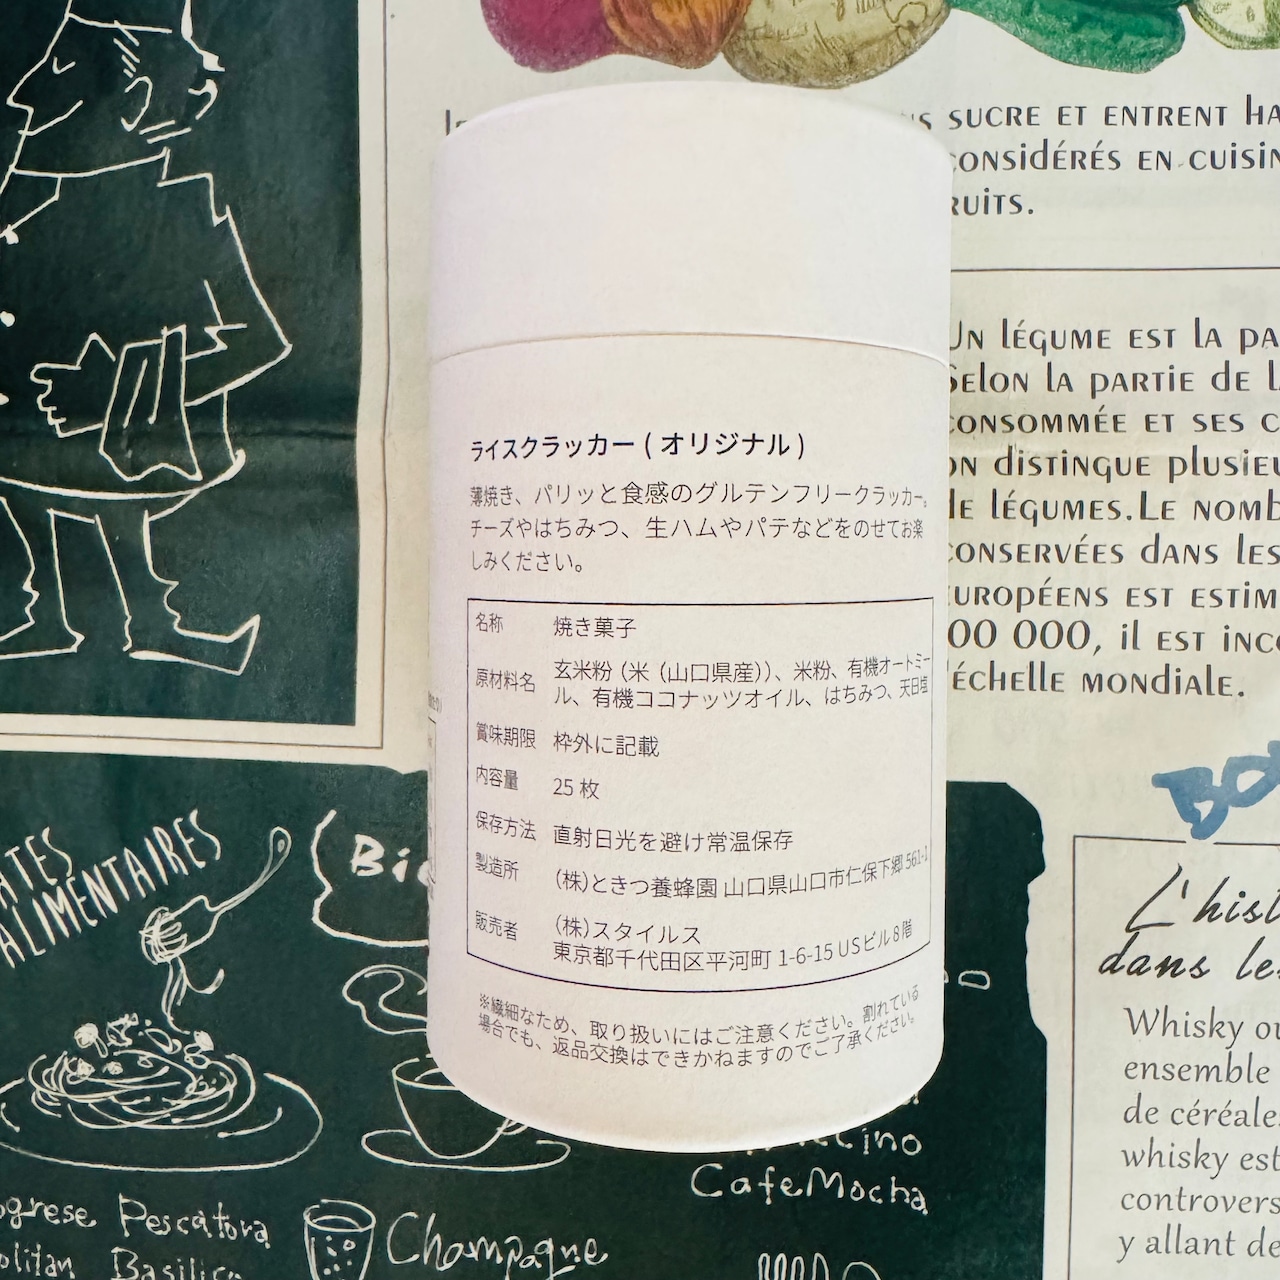 SUCRE ET ENTRENT HA
CONSIDÉRÉS EN CUISIN
RUITS.
UN LÉGUME EST LA PA
SELON LA PARTIE DE L
CONSOMMÉE ET SES C
ON DISTINGUE PLUSIEU
DE LÉGUMES.LE NOMB
CONSERVÉES DANS LES
EUROPÉENS EST ESTIM
00 000, IL EST INC
L'ÉCHELLE MONDIALE.
ライスクラッカー ( オリジナル )
薄焼き、パリッと食感のグルテンフリークラッカー。
チーズやはちみつ、生ハムやパテなどをのせてお楽
しみください。
名称 焼き菓子
原材料名 玄米粉（米（山口県産））、米粉、有機オートミー
ル、有機ココナッツオイル、はちみつ、天日塩
賞味期限 枠外に記載
内容量 25 枚
保存方法 直射日光を避け常温保存
製造所 (株)ときつ養蜂園 山口県山口市仁保下郷 561-1
販売者 (株)スタイルス
東京都千代田区平河町 1-6-15 USビル8階
※繊細なため、取り扱いにはご注意ください。割れている
場合でも、返品交換はできかねますのでご了承ください。
ATES
ALIMENTAIRES
L'hist
dans les
Whisky ou
ensemble
de céréale
whisky est
controvers
y allant de
CafeMocha
Pescatora
Basilic
Champagne